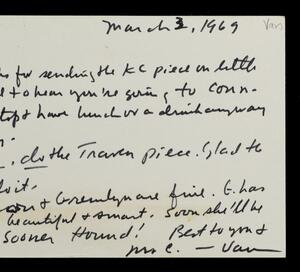 March 3, 1969
Van
for sending the KC piece on little
to hear you're going to Conn-
stop & have lunch or a drink anyway
do the Traven piece. Glad to
do it.
& Gwendlyn are fine. G. has
beautiful & smart. Soon she'll be
Sooner Hound! Best to you &
Mrs C. — Van